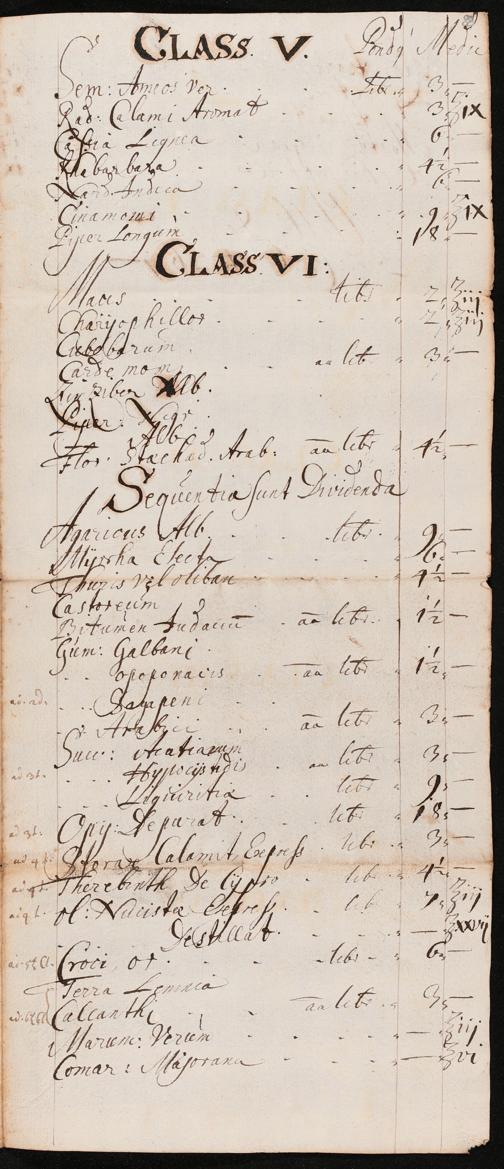 CLASS V. Pondq Medic
Sem: Ameos ver. libr. 3 —
Rad: Calami Aromat 3 ℥IX
Cassia Lignea 6 —
Rhabarbara 4½ —
Nard. Indica 6 —
Cinamomi 9 ℥IX
Piper Longum 18 —
CLASS VI:
Macis libr 2 ℥iij
Charyophillor 2 ℥iij
Cubebarum
Cardemom aa lib 3 —
Zinziber Alb.
Piper: Nigr
Alb:
Flor. Stæchad. Arab: aa libr 4½ —
Sequentia sunt Dividenda
Agaricus Alb. libr. 9 —
Myrrha Electa 6 —
Thuris vel oliban 4½ —
Castoreum
Bitumen Judaicu aa libr. 1½ —
Gum: Galbani
opoponacis aa libr 1½ —
ad. ad. Sagapeni
Arabici aa libr 3 —
Suc: Acatiarum
ad 3t. Hypocistidis aa libr 3 —
Liquiritia libr 9 —
ad 3t. Opy: Depurat. libr 18 —
ad 4t. Storax Calamit Express libr 3 —
Therebinth De Cypro libr 4½ —
ol: Nucista Express. lib 7 ℥iij
Destillat. — ℥xxvij
Croci, or. libr 6 —
Terra Lemnia
Calcanthi aa libr 3 —
Marum: Verum — ℥iij
Comar: Majorana — ℥vi